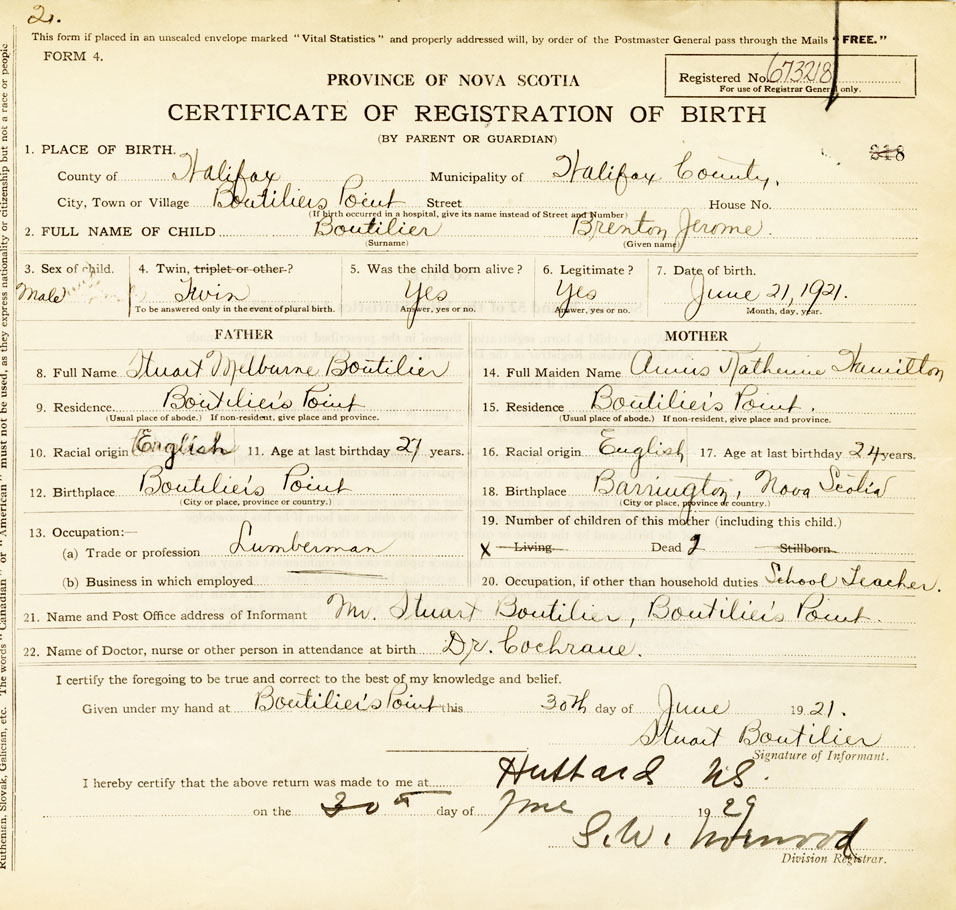 2.
This form if placed in an unsealed envelope marked "Vital Statistics" and properly addressed will, by order of the Postmaster General pass through the Mails "FREE."
FORM 4.
PROVINCE OF NOVA SCOTIA
Registered No. 673218
For use of Registrar General only.
CERTIFICATE OF REGISTRATION OF BIRTH
(BY PARENT OR GUARDIAN)
318
1. PLACE OF BIRTH.
County of Halifax Municipality of Halifax County.
City, Town or Village Boutiliers Point Street House No.
(If birth occurred in a hospital, give its name instead of Street and Number)
2. FULL NAME OF CHILD Boutilier Brenton Jerome.
(Surname) (Given name)
3. Sex of child. Male
4. Twin, triplet or other? Twin
To be answered only in the event of plural birth.
5. Was the child born alive? Yes
Answer, yes or no.
6. Legitimate? Yes
Answer, yes or no.
7. Date of birth. June 21, 1921.
Month, day, year.
FATHER
8. Full Name Stuart Melburne Boutilier
9. Residence Boutilier's Point
(Usual place of abode.) If non-resident, give place and province.
10. Racial origin English 11. Age at last birthday 27 years.
12. Birthplace Boutilier's Point
(City or place, province or country.)
13. Occupation:—
(a) Trade or profession Lumberman
(b) Business in which employed
MOTHER
14. Full Maiden Name Katherine Hamilton
15. Residence Boutilier's Point.
(Usual place of abode.) If non-resident, give place and province.
16. Racial origin English 17. Age at last birthday 24 years.
18. Birthplace Barrington, Nova Scotia
(City or place, province or country.)
19. Number of children of this mother (including this child.)
X Living Dead 2 Stillborn
20. Occupation, if other than household duties School Teacher.
21. Name and Post Office address of Informant Mr. Stuart Boutilier, Boutilier's Point.
22. Name of Doctor, nurse or other person in attendance at birth Dr. Cochrane.
I certify the foregoing to be true and correct to the best of my knowledge and belief.
Given under my hand at Boutilier's Point this 30th day of June 1921.
Stuart Boutilier
Signature of Informant.
I hereby certify that the above return was made to me at Hubbard NS.
on the 30th day of June 1929
S. W. Norwood
Division Registrar.
Ruthenian, Slovak, Galician, etc. The words "Canadian" or "American" must not be used, as they express nationality or citizenship but not a race or people